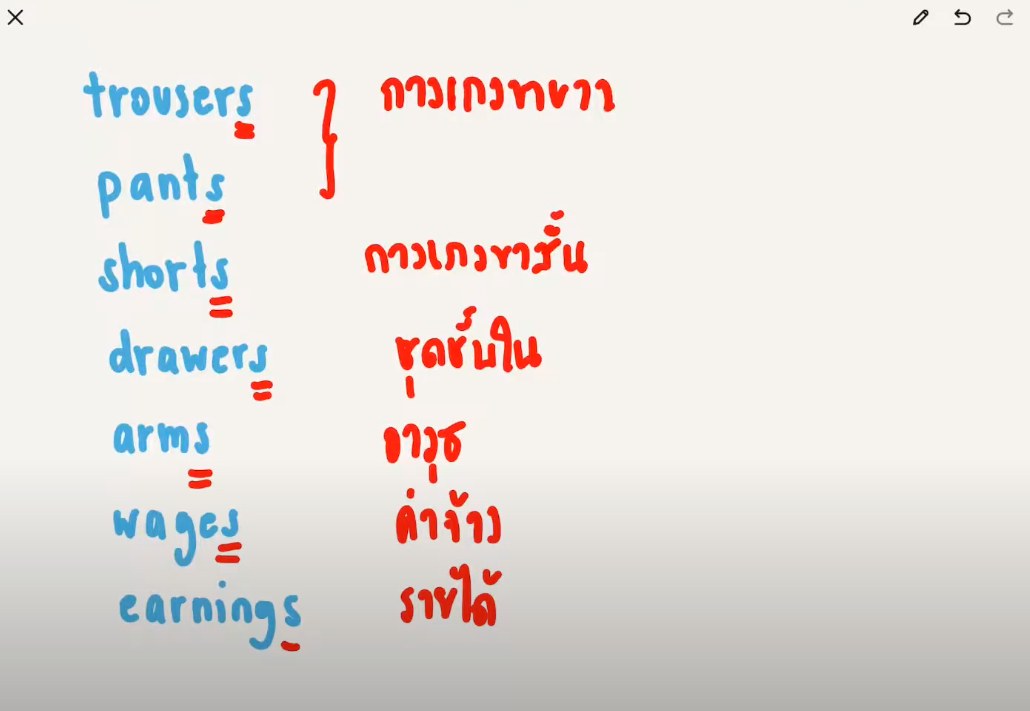 trousers } กางเกงขายาว
pants
shorts กางเกงขาสั้น
drawers ชุดชั้นใน
arms อาวุธ
wages ค่าจ้าง
earnings รายได้